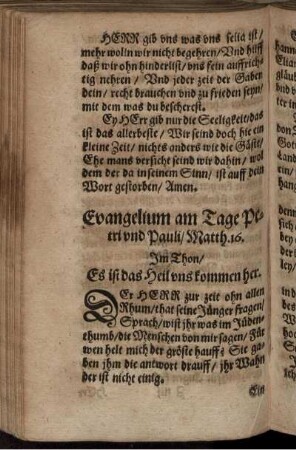 HERR gib vns was vns selig ist/
mehr wolln wir nicht begehren/Vnd hilff
daß wir ohn hinderlist/vns fein auffrich-
tig nehren/ Vnd jeder zeit der Gaben
dein/ recht brauchen vnd zu frieden seyn/
mit dem was du bescherest.
Ey HErr gib nur die Seeligkeit/das
ist das allerbeste/ Wir seind doch hie ein
kleine Zeit/ nichts anders wie die Gäste/
Ehe mans versicht seind wir dahin/ wol
dem der da in seinem Sinn/ ist auff dein
Wort gestorben/ Amen.
Evangelium am Tage Pe-
tri vnd Pauli/ Matth. 16.
Im Thon/
Es ist das Heil vns kommen her.
DEr HERR zur zeit ohn allen
Rhum/that seine Jünger fragen/
Sprach/wist jhr was im Jüden-
thumb/die Menschen von mir sagen/ Für
wen helt mich der gröste hauff? Sie ga-
ben jhm die antwort drauff/ jhr Wahn
der ist nicht einig.
Ein